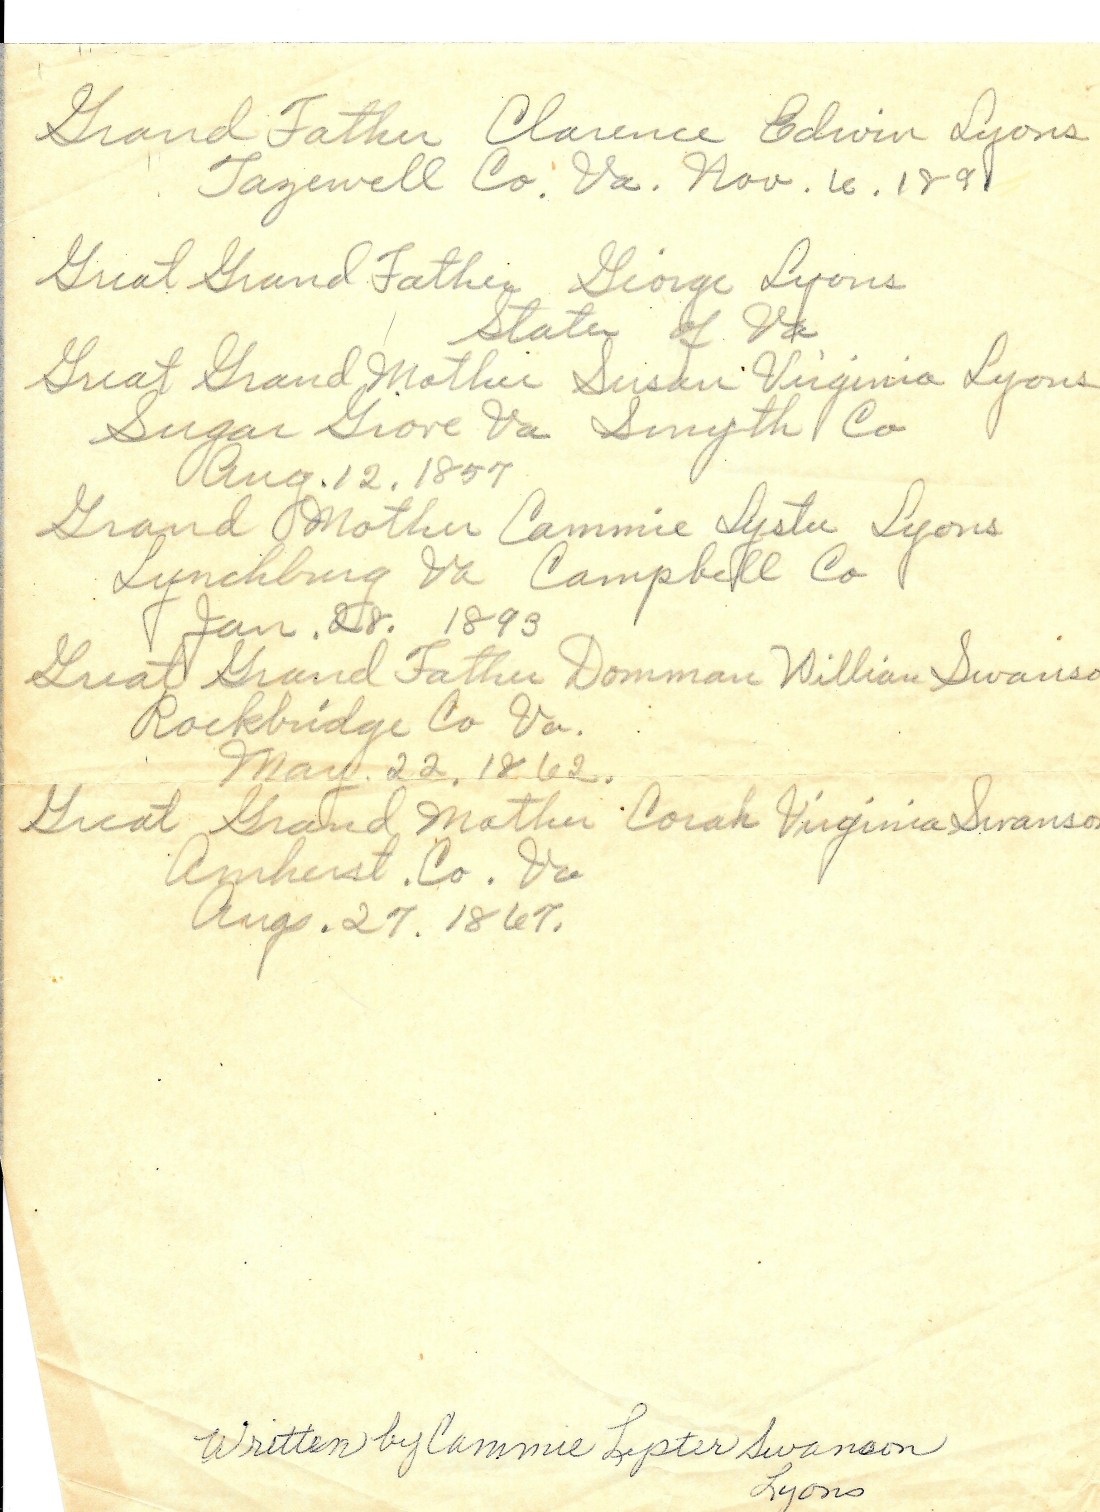 Grand Father Clarence Edwin Lyons
Tazewell Co. Va. Nov. 6. 1891
Great Grand Father George Lyons
State of Va
Great Grand Mother Susan Virginia Lyons
Sugar Grove Va Smyth Co
Aug. 12. 1857
Grand Mother Cammie Lyster Lyons
Lynchburg Va Campbell Co
Jan. 28. 1893
Great Grand Father Domman William Swanso
Rockbridge Co Va.
May. 22. 1862.
Great Grand Mother Corah Virginia Swanson
Amherst. Co. Va
Augs. 27. 1867.
Written by Cammie Lepter Swanson
Lyons